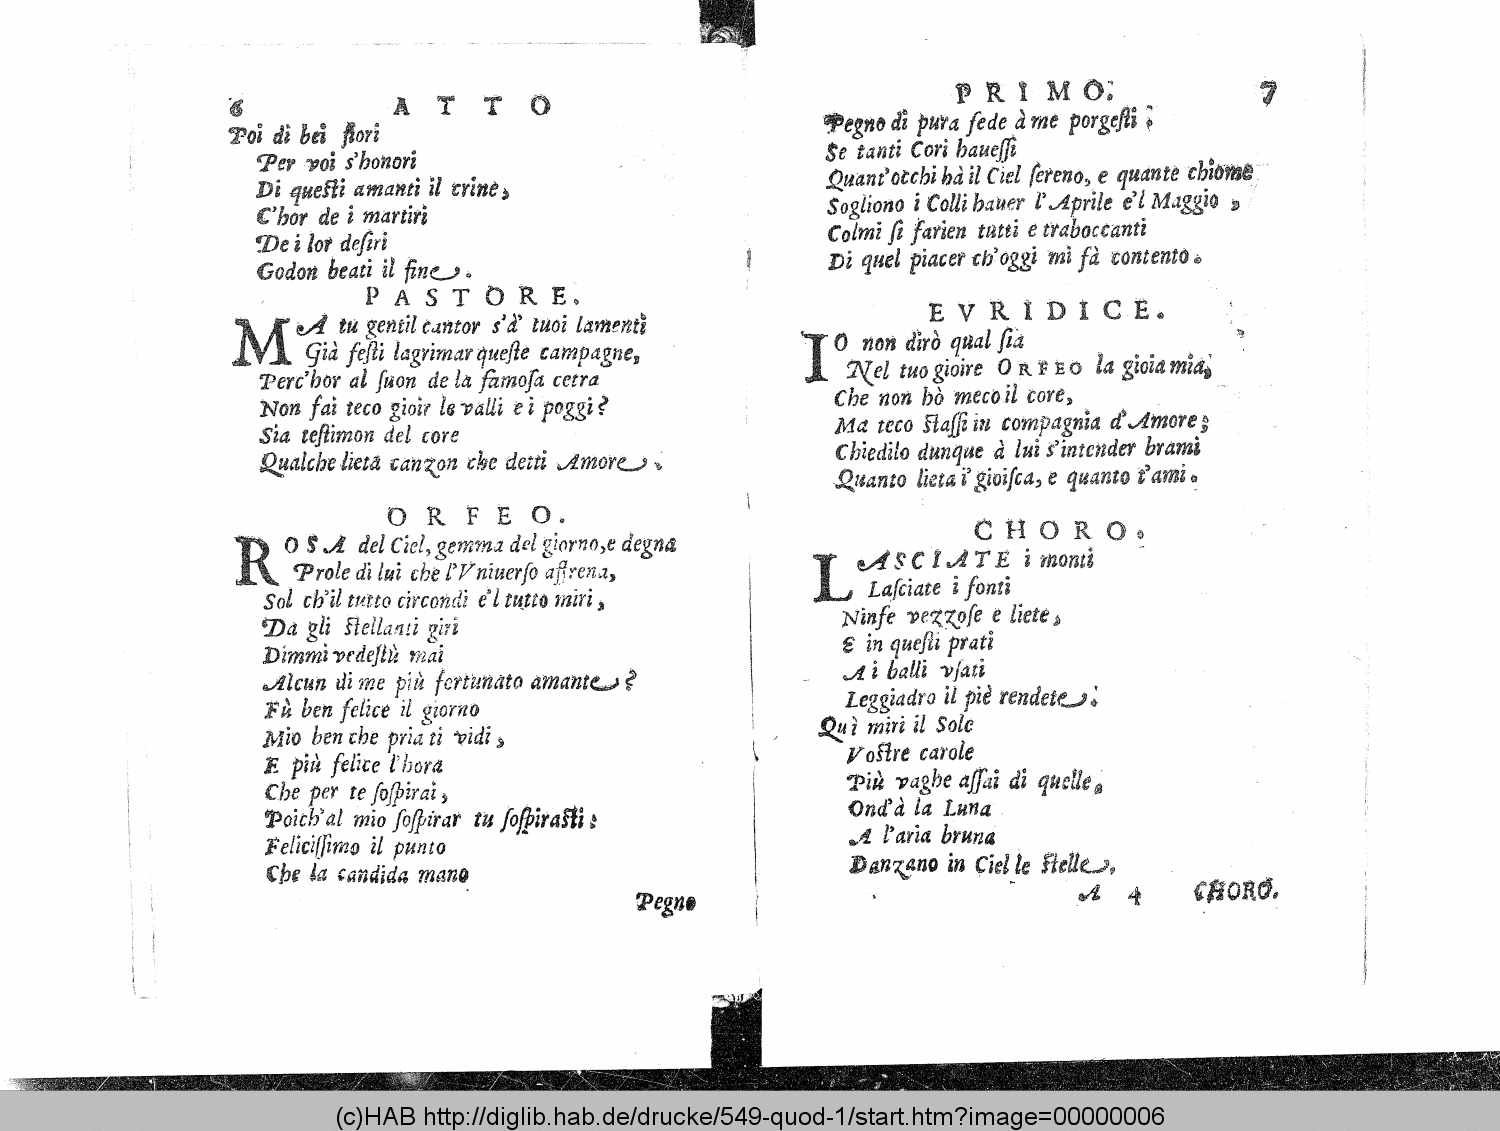 6 ATTO
Poi di bei fiori
Per voi s'honori
Di questi amanti il crine,
C'hor de i martiri
De i lor desiri
Godon beati il fine.
PASTORE.
MA tu gentil cantor s'à' tuoi lamenti
Già festi lagrimar queste campagne,
Perc'hor al suon de la famosa cetra
Non fai teco gioir le valli e i poggi?
Sia testimon del core
Qualche lieta canzon che detti Amore.
ORFEO.
ROSA del Ciel, gemma del giorno, e degna
Prole di lui che l'Vniuerso affrena,
Sol ch'il tutto circondi e'l tutto miri,
Da gli stellanti giri
Dimmi vedestù mai
Alcun di me più fortunato amante?
Fù ben felice il giorno
Mio ben che pria ti vidi,
E più felice l'hora
Che per te sospirai,
Poich'al mio sospirar tu sospirasti:
Felicissimo il punto
Che la candida mano
Pegno
PRIMO. 7
Pegno di pura fede à me porgesti;
Se tanti Cori hauessi
Quant'occhi hà il Ciel sereno, e quante chiome
Sogliono i Colli hauer l'Aprile e'l Maggio,
Colmi si farien tutti e traboccanti
Di quel piacer ch'oggi mi fà contento.
EVRIDICE.
IO non dirò qual sia
Nel tuo gioire ORFEO la gioia mia,
Che non hò meco il core,
Ma teco stassi in compagnia d'Amore;
Chiedilo dunque à lui s'intender brami
Quanto lieta i' gioisca, e quanto t'ami.
CHORO.
LASCIATE i monti
Lasciate i fonti
Ninfe vezzose e liete,
E in questi prati
A i balli vsati
Leggiadro il piè rendete.
Quì miri il Sole
Vostre carole
Più vaghe assai di quelle,
Ond'à la Luna
A l'aria bruna
Danzano in Ciel le stelle,
A 4 CHORO.
(c)HAB http://diglib.hab.de/drucke/549-quod-1/start.htm?image=00000006